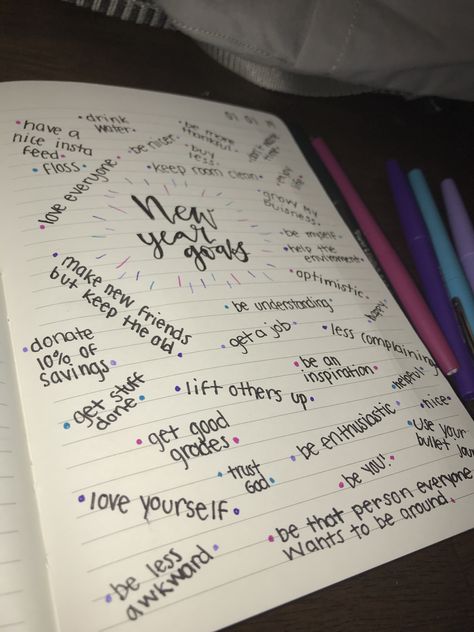 • drink water.
• have a nice insta feed •
• floss •
• be nicer.
• be more thankful.
• buy less.
• keep room clean.
• love everyone
New year goals
• grow my buisness.
• be myself.
• help the environment.
• optimistic.
• happy.
• make new friends but keep the old.
• be understanding.
• get a job.
• less complaining
• donate 10% of savings.
• be an inspiration.
• helpful
• get stuff done •
• lift others up.
• nice.
• get good grades •
• be enthusiastic
• use your bullet
• trust God.
• be you!
• love yourself.
• be that person everyone wants to be around.
• be less awkward